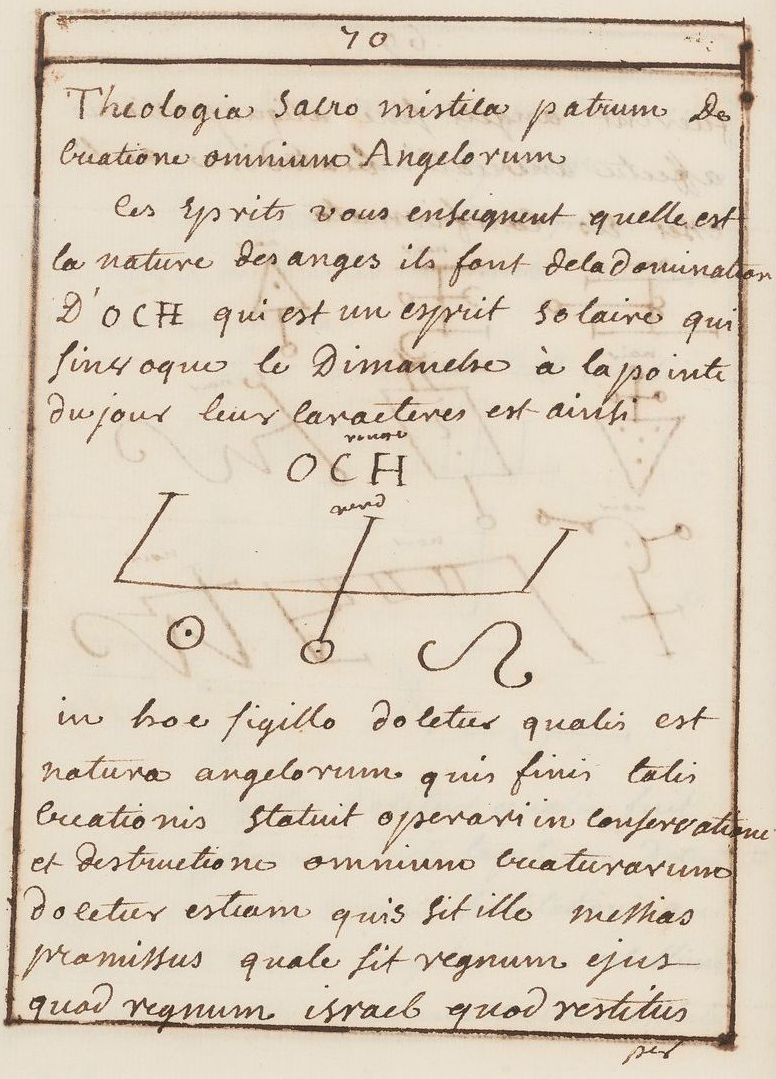 70
Theologia Sacro mistica patrum De
Creatione omnium Angelorum
les Sprits vous enseignent quelle est
la nature des anges ils sont de la Domination
D'OCH qui est un esprit Solaire qui
S'invoque le Dimanche à la pointe
du jour leur Caracteres est ainsi
rouge
OCH
verd
in hoc Sigillo docetur qualis est
natura angelorum quis finis talis
Creationis Statuit operari in Conservatione
et destructione omnium Creaturarum
docetur estiam quis Sit ille messias
promissus quale Sit regnum ejus
quod regnum israel quod restitus
per